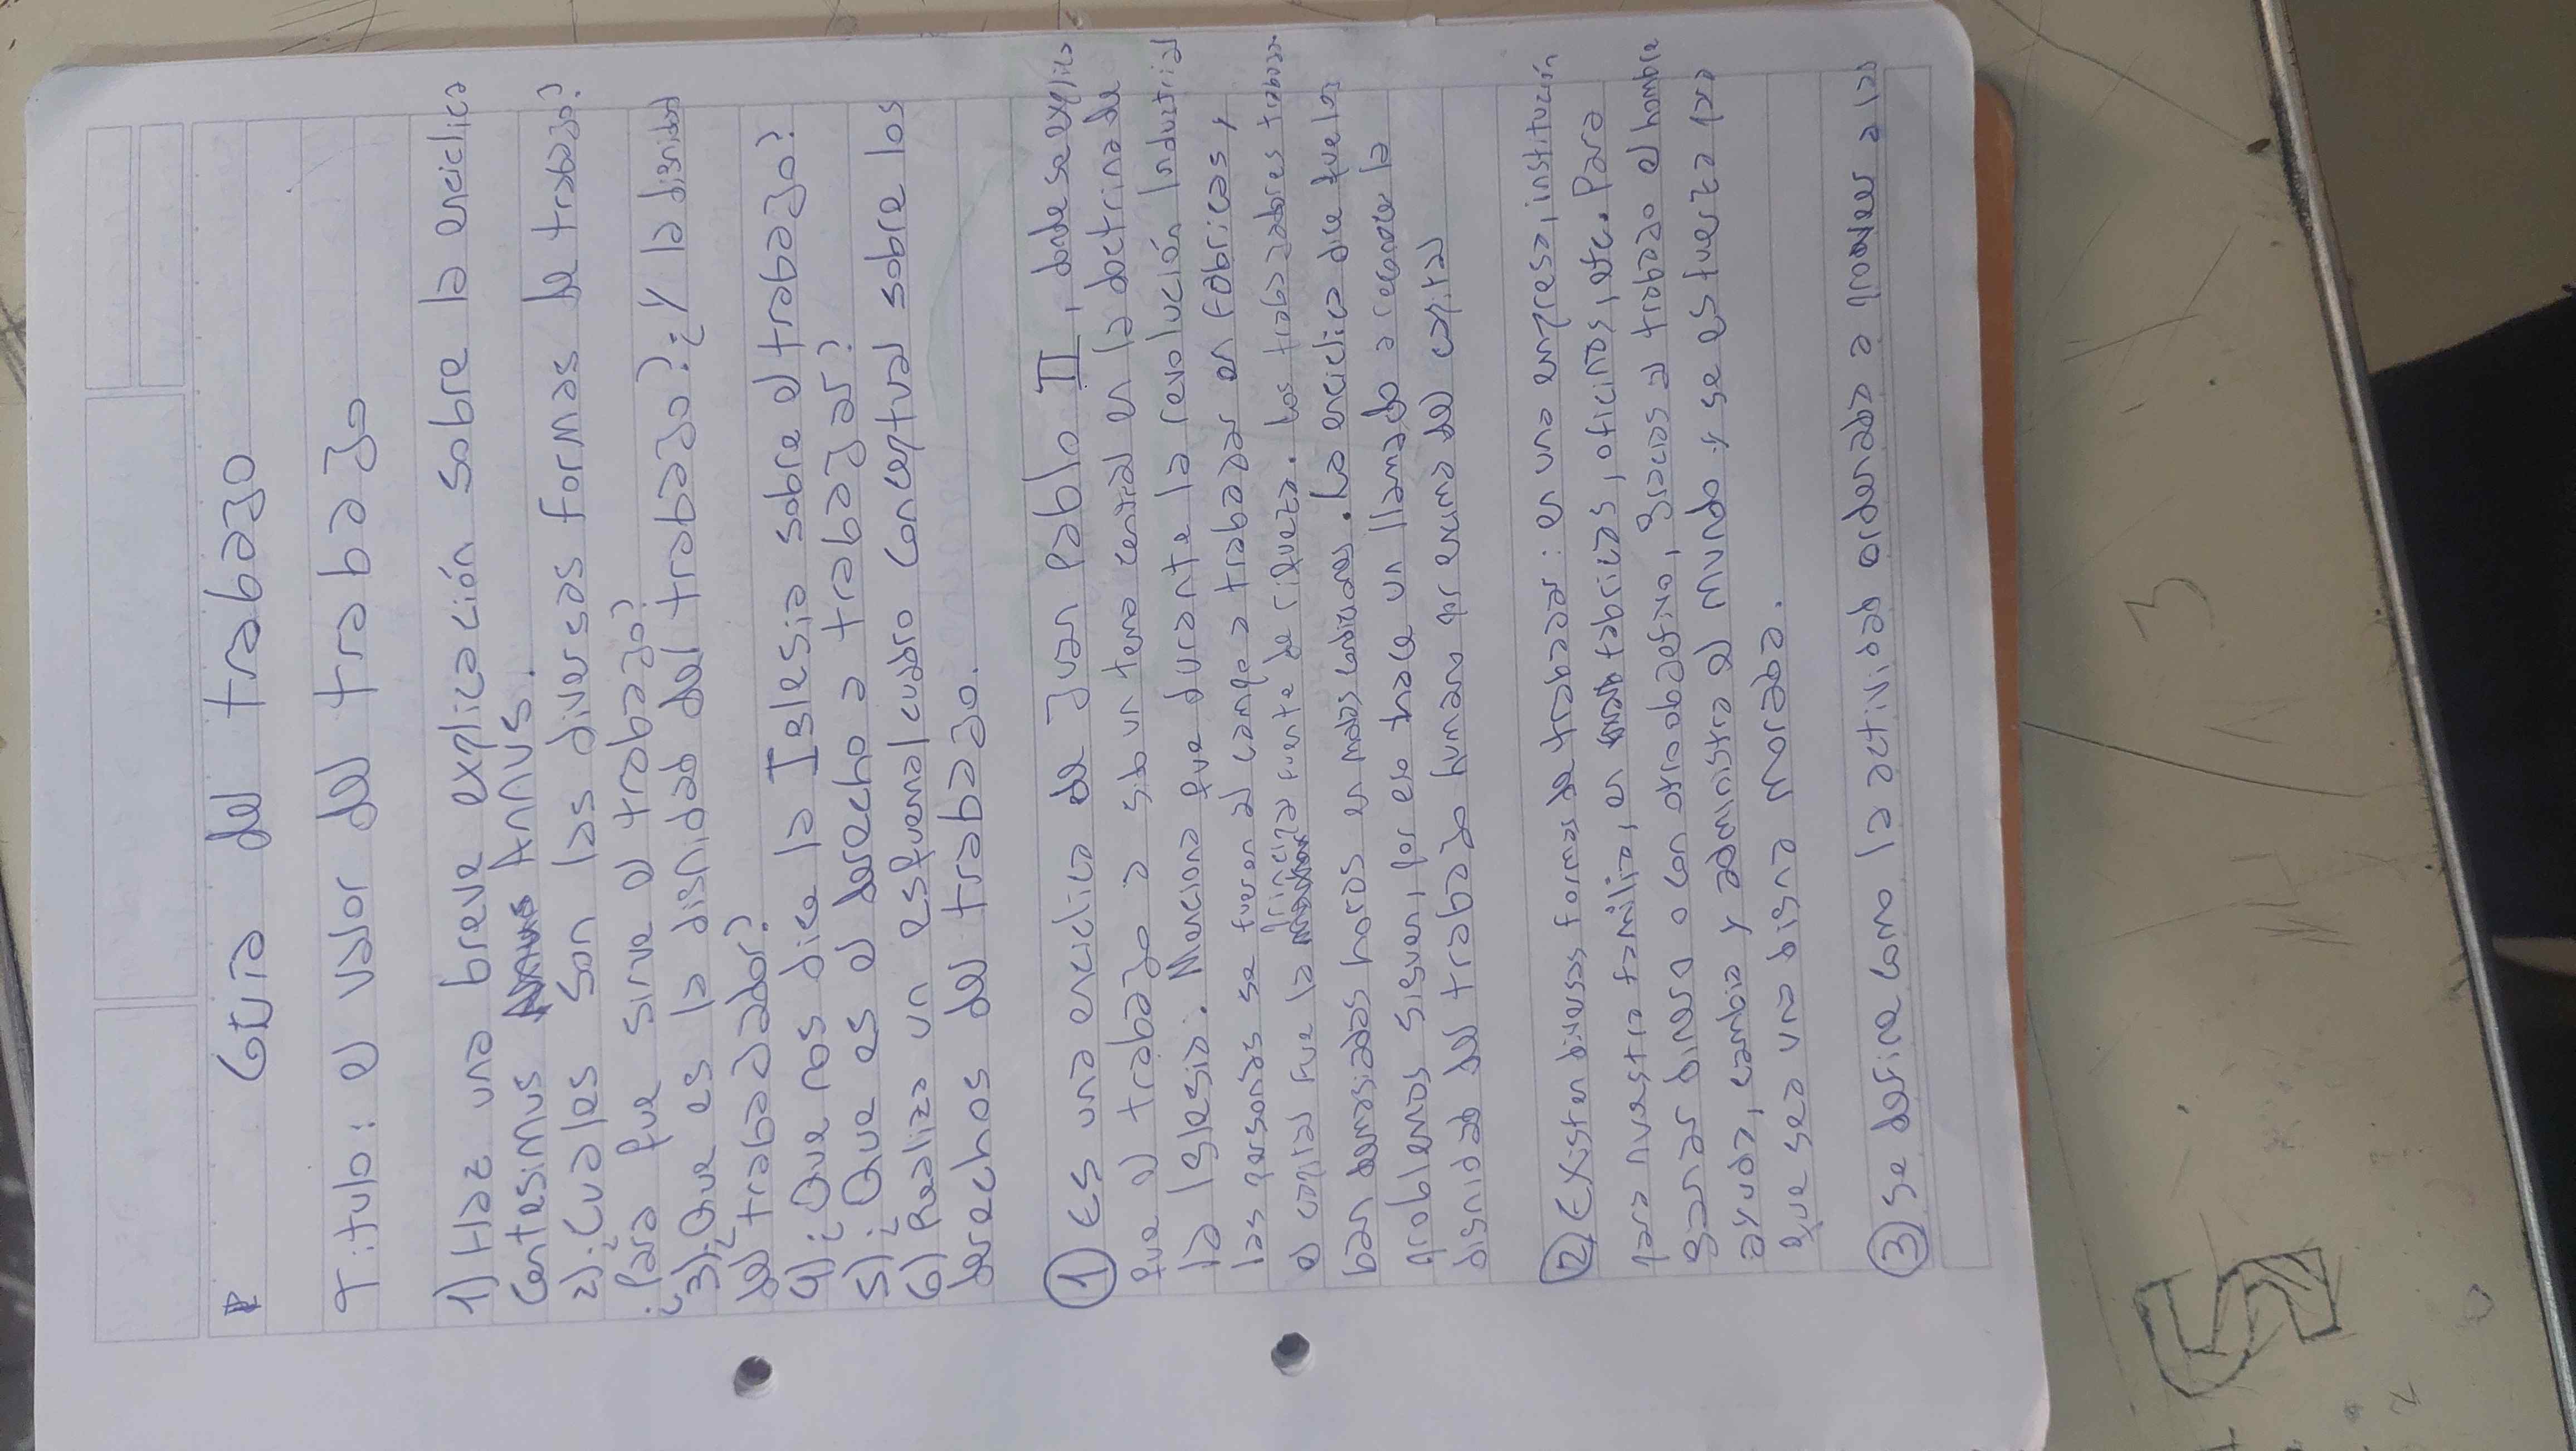 Guia del trabajo
Titulo: el valor del trabajo
1) Haz una breve explicación sobre la enciclica
Centesimus Annus.
2) ¿Cuales son las diversas formas de trabajo?
¿Para que sirve el trabajo?
3) ¿Que es la dignidad del trabajo? ¿Y la dignidad
del trabajador?
4) ¿Que nos dice la Iglesia sobre el trabajo?
5) ¿Que es el derecho a trabajar?
6) Realiza un esquema/cuadro conceptual sobre los
derechos del trabajo.
1 Es una enciclica de Juan Pablo II, donde se explica
que el trabajo a sido un tema central en la doctrina de
la Iglesia. Menciona que durante la revolución Industrial
las personas se fueron al campo a trabajar en fábricas,
el capital fue la principal fuente de riqueza. Los trabajadores trabaja-
ban demasiadas horas en malas condiciones. La enciclica dice que los
problemas siguen, por eso hace un llamado a reconocer la
dignidad del trabajo humano por encima del capital
2 Existen diversas formas de trabajar: en una empresa, institución
para nuestra familia, en fabricas, oficinas, etc. Para
ganar dinero o con otro objetivo, gracias al trabajo el hombre
ayuda, cambia y administra el mundo y se esfuerza para
que sea una digna morada.
3 Se define como la actividad ordenada a proveer a las
3